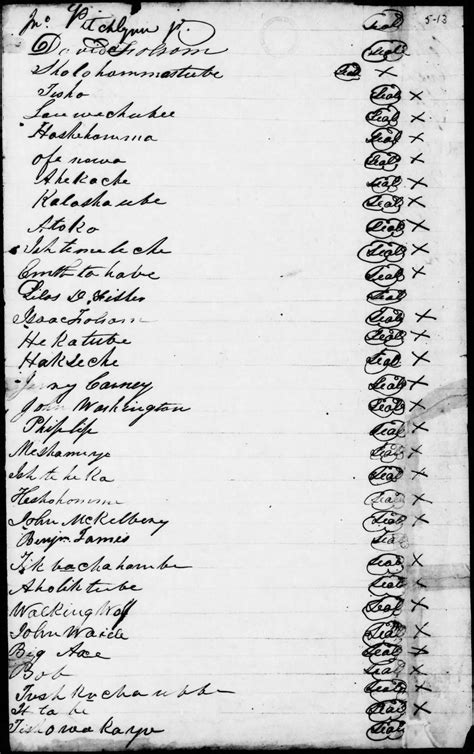 Jno. Pitchlynn jr. Seal 5-13
David Folsom Seal
Sholohommastube Seal X
Tisho Seal X
Lauwachubee Seal X
Hoshehomma Seal X
Ofenowo Seal X
Ahekoche Seal X
Kaloshoube Seal X
Atoko Seal X
Ishtemeleche Seal X
Emthtohabe Seal X
Silas D. Fisher Seal
Isaac Folsom Seal X
Hekatube Seal X
Hakseche Seal X
Jerry Carney Seal X
John Washington Seal X
Phiplip Seal X
Meshameye Seal X
Ishteheka Seal X
Heshohomme Seal X
John McKelbery Seal X
Benjm James Seal
Tikbachahambe Seal X
Aholiktube Seal X
Walking Wolf Seal X
John Waide Seal X
Big Axe Seal X
Bob Seal X
Tushkochaubbe Seal X
Ittabe Seal X
Tishowakayo Seal X